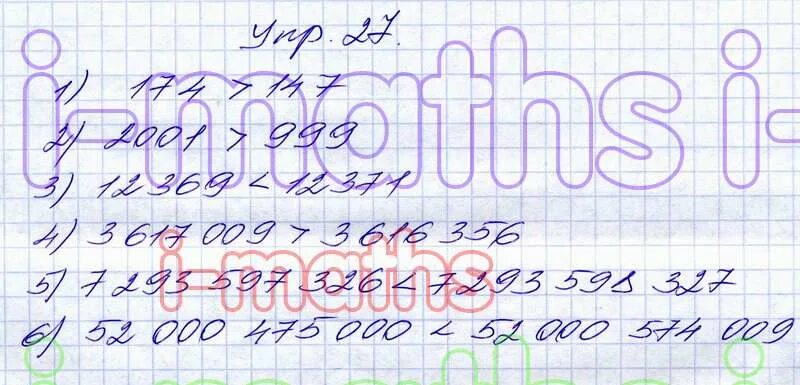 Упр. 27.
1) 174 > 147
2) 2001 > 999
3) 12369 < 12371
4) 3 617 009 > 3 616 356
5) 7 293 597 326 < 7 293 598 327
6) 52 000 475 000 < 52 000 574 009
i-maths i-
i-maths